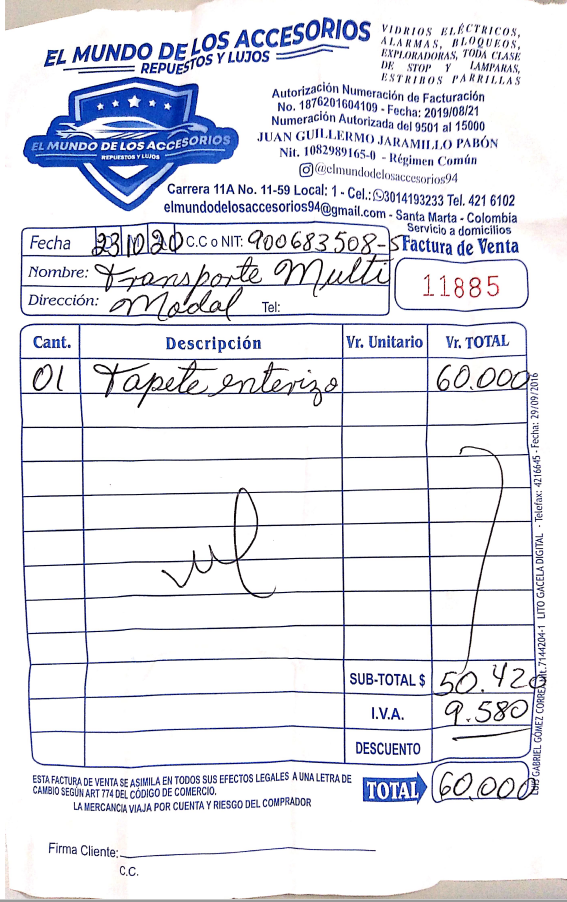 EL MUNDO DE LOS ACCESORIOS
REPUESTOS Y LUJOS
VIDRIOS ELÉCTRICOS,
ALARMAS, BLOQUEOS,
EXPLORADORAS, TODA CLASE
DE STOP Y LAMPARAS,
ESTRIBOS PARRILLAS
EL MUNDO DE LOS ACCESORIOS
REPUESTOS Y LUJOS
Autorización Numeración de Facturación
No. 1876201604109 - Fecha: 2019/08/21
Numeración Autorizada del 9501 al 15000
JUAN GUILLERMO JARAMILLO PABÓN
Nit. 1082989165-0 - Régimen Común
@elmundodelosaccesorios94
Carrera 11A No. 11-59 Local: 1 - Cel.: 3014193233 Tel. 421 6102
elmundodelosaccesorios94@gmail.com - Santa Marta - Colombia
Servicio a domicilios
Fecha 23 10 20 C.C o NIT: 900683508-5
Factura de Venta
11885
Nombre: Transporte Multi
Dirección: Modal Tel:
Cant. Descripción Vr. Unitario Vr. TOTAL
01 Tapete enterizo 60.000
SUB-TOTAL $ 50.420
I.V.A. 9.580
DESCUENTO
TOTAL 60.000
ESTA FACTURA DE VENTA SE ASIMILA EN TODOS SUS EFECTOS LEGALES A UNA LETRA DE
CAMBIO SEGÚN ART 774 DEL CÓDIGO DE COMERCIO.
LA MERCANCIA VIAJA POR CUENTA Y RIESGO DEL COMPRADOR
Firma Cliente:
C.C.
LUIS GABRIEL GÓMEZ CORREA Nit. 7144204-1 LITO GACELA DIGITAL - Telefax: 4216645 - Fecha: 29/09/2016